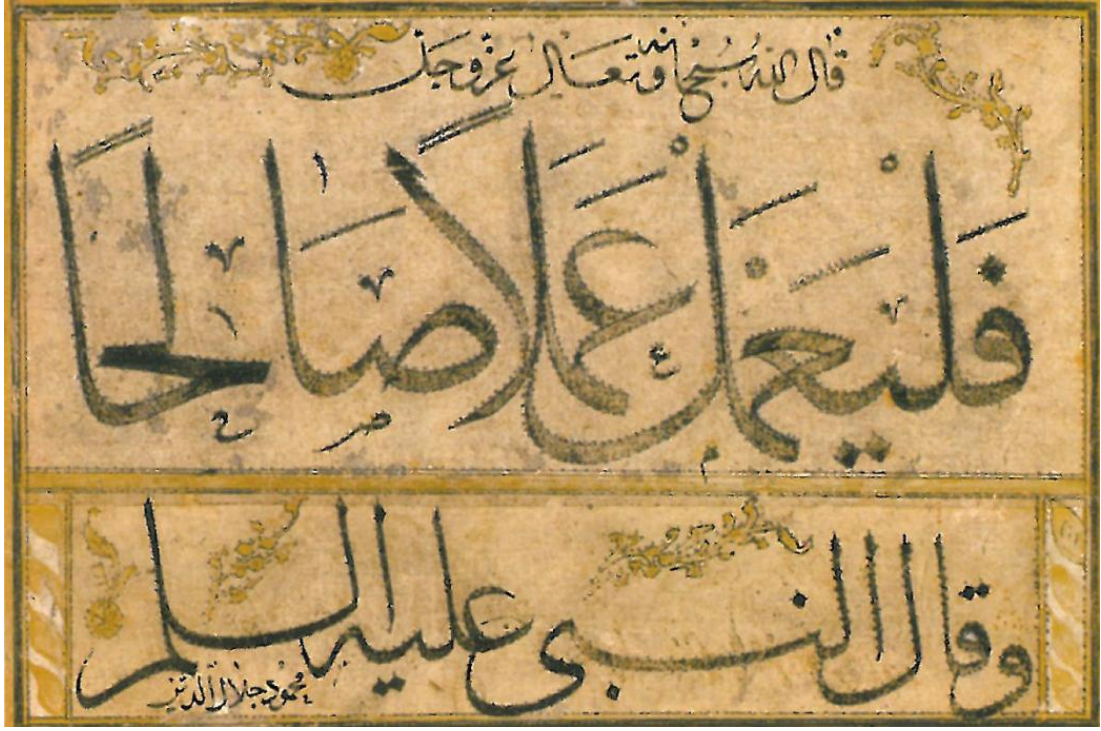 قال الله سبحانه وتعالى عز وجل
فَلْيَعْمَلْ عَمَلًا صَالِحًا
وقال النبي عليه السلم
محمود جلال الدين